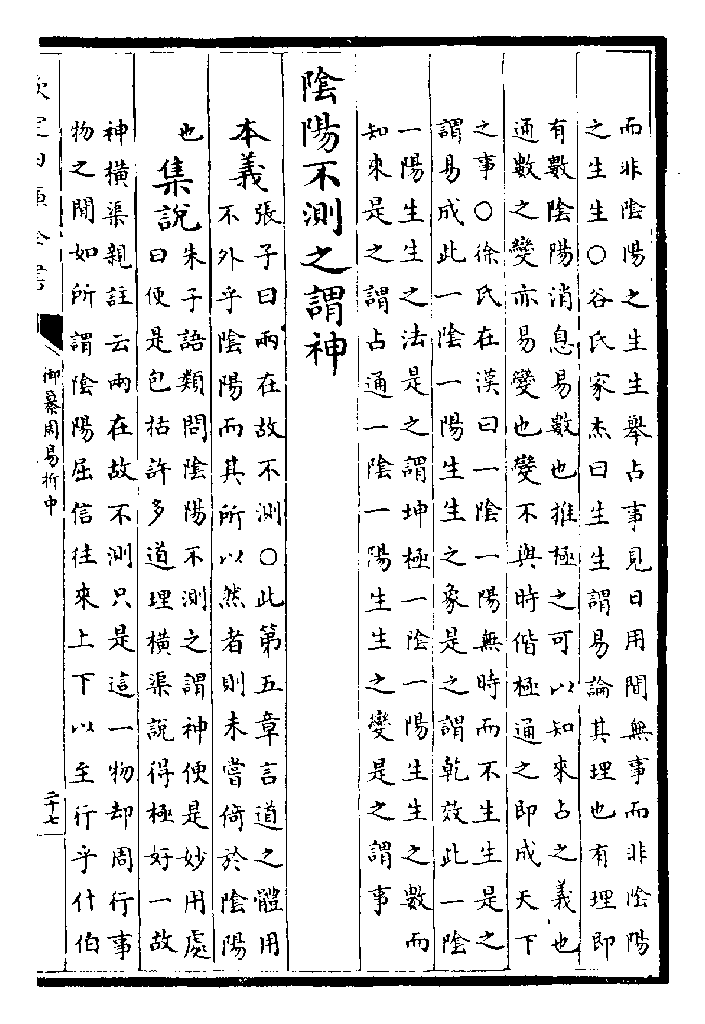 而非陰陽之生生舉占事見日用間無事而非陰陽
之生生○谷氏家杰曰生生謂易論其理也有理即
有數陰陽消息易數也推極之可以知來占之義也
通數之變亦易變也變不與時偕極通之即成天下
之事○徐氏在漢曰一陰一陽無時而不生生是之
謂易成此一陰一陽生生之象是之謂乾效此一陰
一陽生生之法是之謂坤極一陰一陽生生之數而
知來是之謂占通一陰一陽生生之變是之謂事
陰陽不測之謂神
本義
張子曰兩在故不測○此第五章言道之體用
不外乎陰陽而其所以然者則未嘗倚於陰陽
也
集說
朱子語類問陰陽不測之謂神便是妙用處
曰便是包括許多道理橫渠說得極好一故
神橫渠親註云兩在故不測只是這一物却周行事
物之間如所謂陰陽屈信往來上下以至行乎什伯
欽定四庫全書
御纂周易折中
二十七